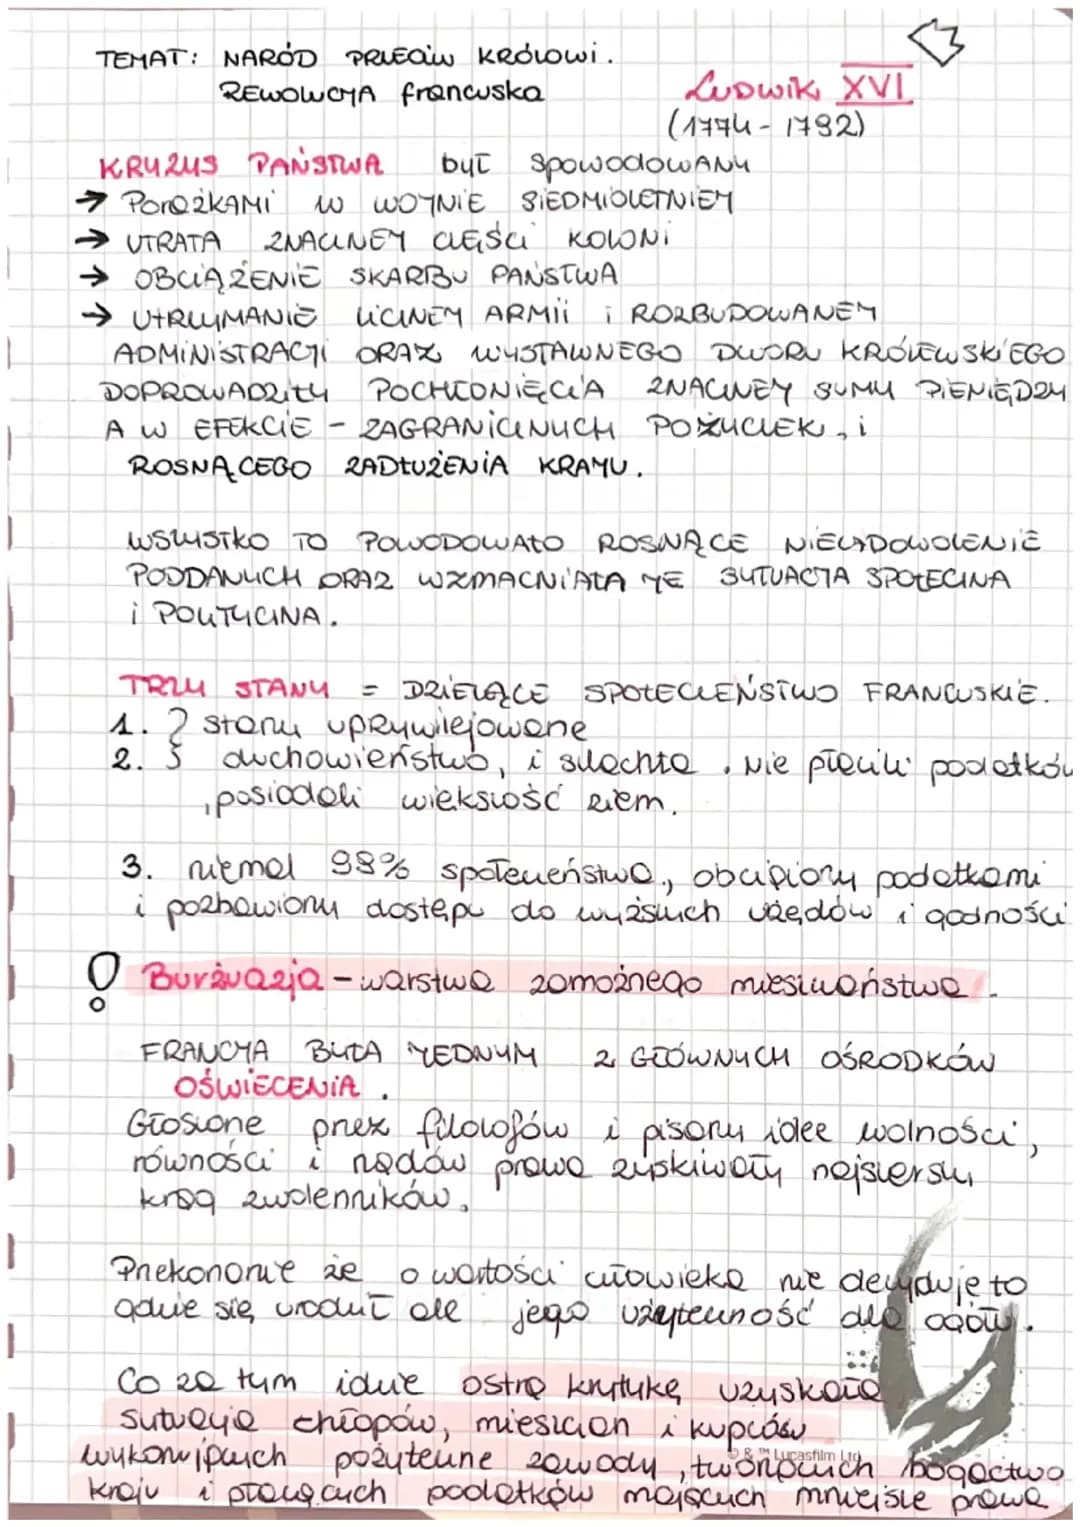 TEMAT: NARÓD PRZECIW KRÓLOWI.
REWOLUCJA francuska
Ludwik XVI
(1774 - 1792)
KRYZYS PAŃSTWA był spowodowany
→ PORAŻKAMI W WOJNIE SIEDMIOLETNIEJ
→ UTRATA ZNACZNEJ CZĘŚCI KOLONI
→ OBCIĄŻENIE SKARBU PAŃSTWA
→ UTRZYMANIE LICZNEJ ARMII i ROZBUDOWANEJ
ADMINISTRACJI ORAZ WYSTAWNEGO DWORU KRÓLEWSKIEGO
DOPROWADZIŁY POCHŁONIĘCIA ZNACZNEJ SUMY PIENIĘDZY
A W EFEKCIE - ZAGRANICZNYCH POŻYCZEK, i
ROSNĄCEGO ZADŁUŻENIA KRAJU.
WSZYSTKO TO POWODOWAŁO ROSNĄCE NIEZADOWOLENIE
PODDANYCH ORAZ WZMACNIAŁA JE SYTUACJA SPOŁECZNA
i POLITYCZNA.
TRZY STANY = DZIELĄCE SPOŁECZEŃSTWO FRANCUSKIE.
1. } stany uprywilejowane
2. } duchowieństwo, i szlachta. Nie płacili podatków
, posiadali większość ziem.
3. niemal 98% społeczeństwa, obciążony podatkami
i pozbawiony dostępu do wyższych urzędów i godności
! Burżuazja - warstwa zamożnego mieszczaństwa.
FRANCJA BYŁA JEDNYM Z GŁÓWNYCH OŚRODKÓW
OŚWIECENIA.
Głoszone przez filozofów i pisarzy idee wolności,
równości i rządów prawa zyskiwały najszerszy
krąg zwolenników.
Przekonanie że o wartości człowieka nie decyduje to
gdzie się urodził ale jego użyteczność dla ogółu.
Co za tym idzie ostrą krytykę uzyskała
sytuacja chłopów, mieszczan i kupców
© & ™ Lucasfilm Ltd.
wykonujących pożyteczne zawody, tworzących bogactwo
kraju i płacących podatków mających mniejsze prawa